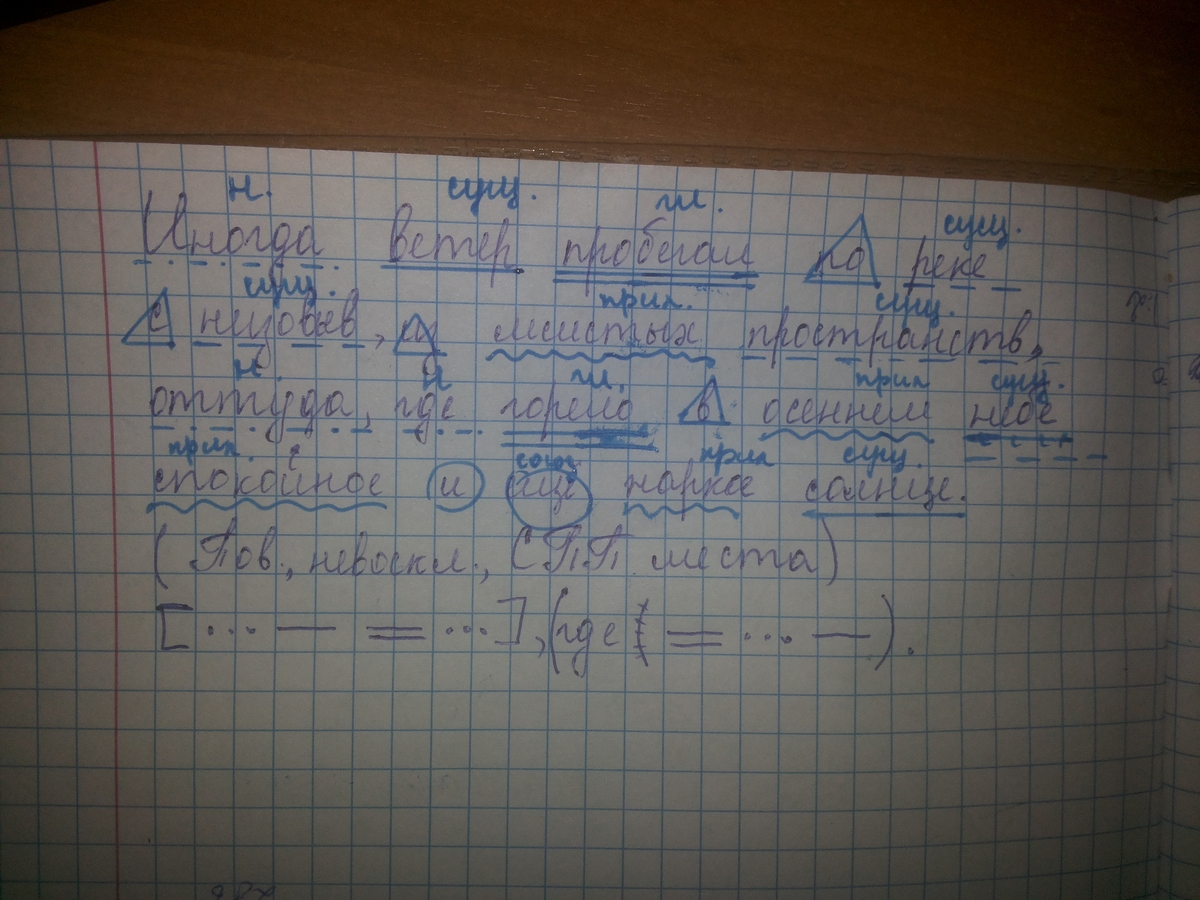 н. сущ. гл. сущ.
Иногда ветер пробегал по реке
сущ. прил. сущ.
с низовьев, из мглистых пространств,
н. н гл. прил сущ.
оттуда, где горело в осеннем небе
прил. с союз прил сущ.
спокойное и еще жаркое солнце.
(Пов., невоскл., СПП места)
[... — = ...], (где = ... —).